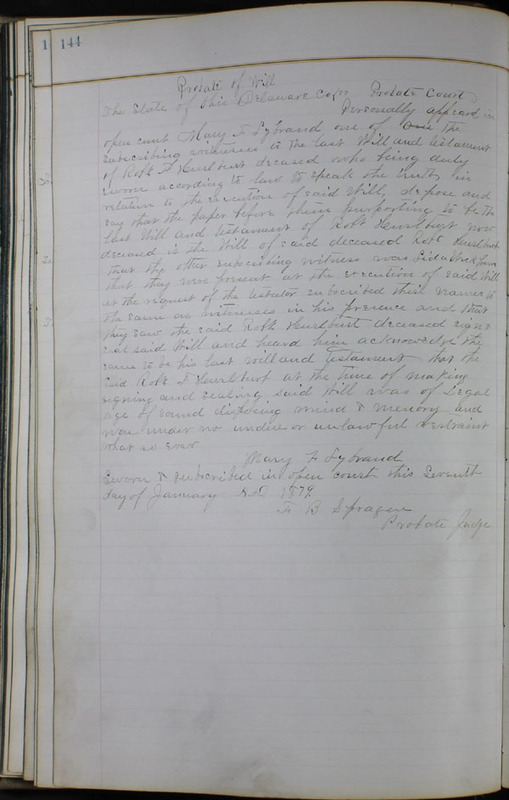 1 144
Probate of Will
The State of Ohio Delaware Co ss Probate Court
Personally appeard in
open court Mary F Sybrand one of the
subscribing witnesses to the last Will and testament
of Robt F Hurlburt deceased who being duly
sworn according to law to speak the truth in
relation to the execution of said Will, depose and
say that the paper before them purporting to be the
last Will and testament of Robt Hurlburt now
deceased is the Will of said deceased Robt Hurlburt
that the other subscribing witness was
that they were present at the execution of said Will
at the request of the testator subscribed their names to
the same as witnesses in his presence and that
they saw the said Robt Hurlburt deceased sign &
seal said Will and heard him acknowledge the
same to be his last will and testament that the
said Robt F Hurlburt at the time of making
signing and sealing said Will was of Legal
age of sound disposing mind & memory and
was under no undue or unlawful restraint
what so ever
Mary F Sybrand
Sworn & subscribed in open court this Seventh
day of January A.D. 1879.
F B Sprague
Probate Judge